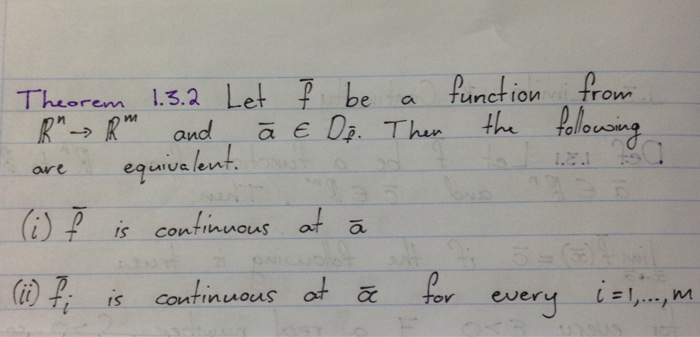 Theorem 1.3.2 Let f̄ be a function from
ℝⁿ → ℝᵐ and ā ∈ D_f̄. Then the following
are equivalent.
(i) f̄ is continuous at ā
(ii) f̄ᵢ is continuous at ā for every i=1,...,m